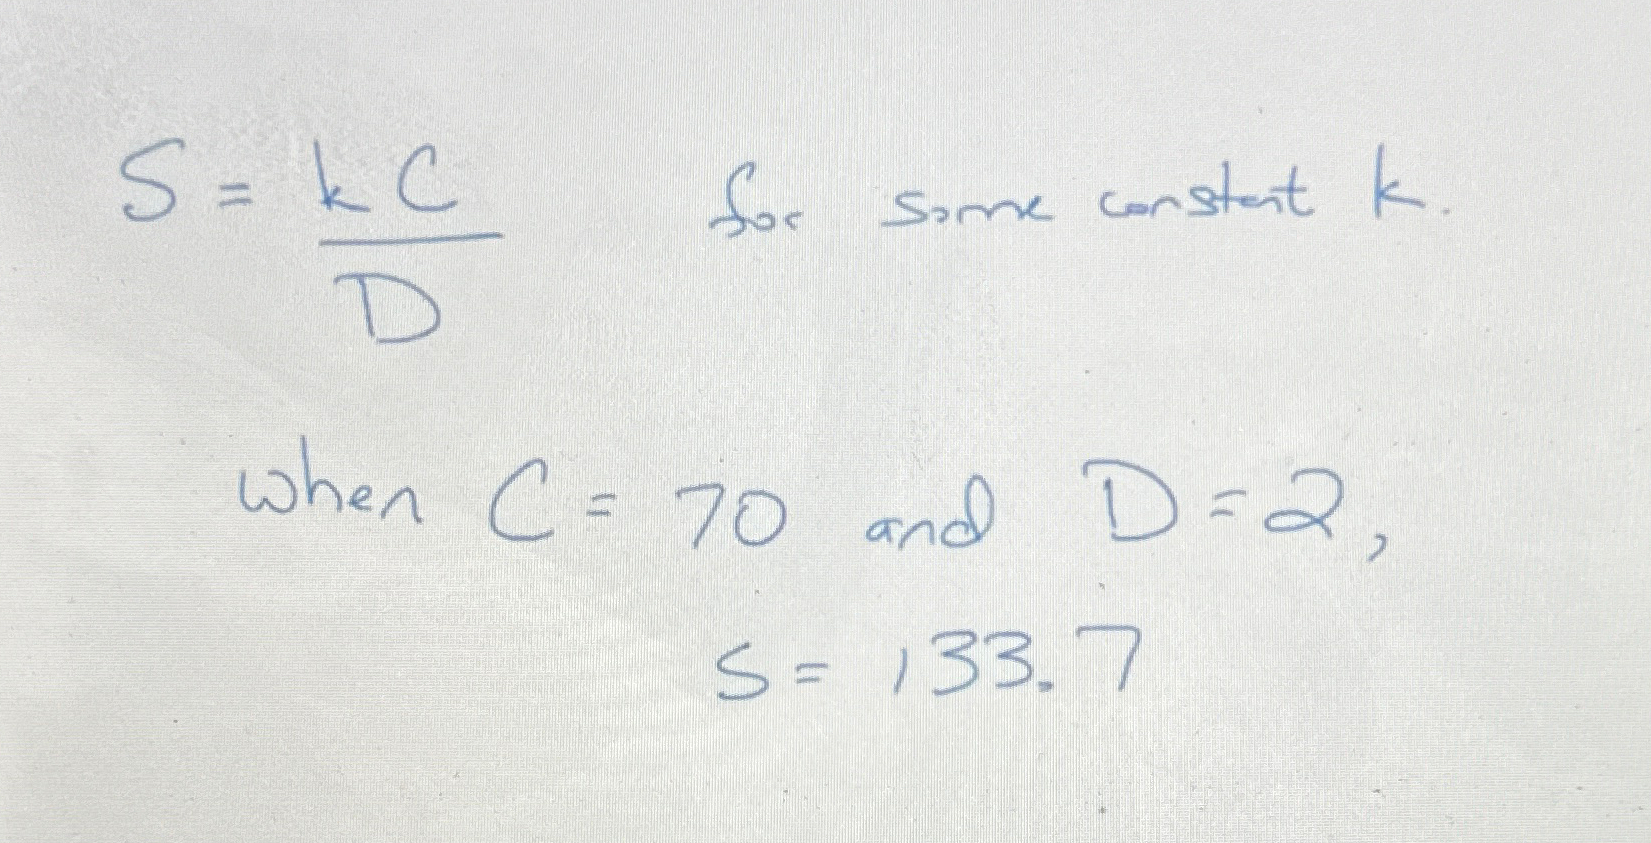 S = kC/D for some constant k.
when C = 70 and D = 2,
S = 133.7